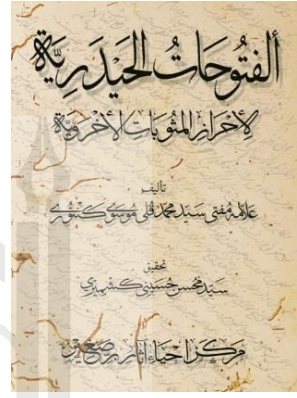 ألفتوحات الحيدرية
لإحراز المثوبات الأخروية
تأليف
علامه مفتی سید محمد قلی موسوی کنتوری
تحقیق
سید محسن حسینی کشمیری
مرکز احیاء آثار برصغیر